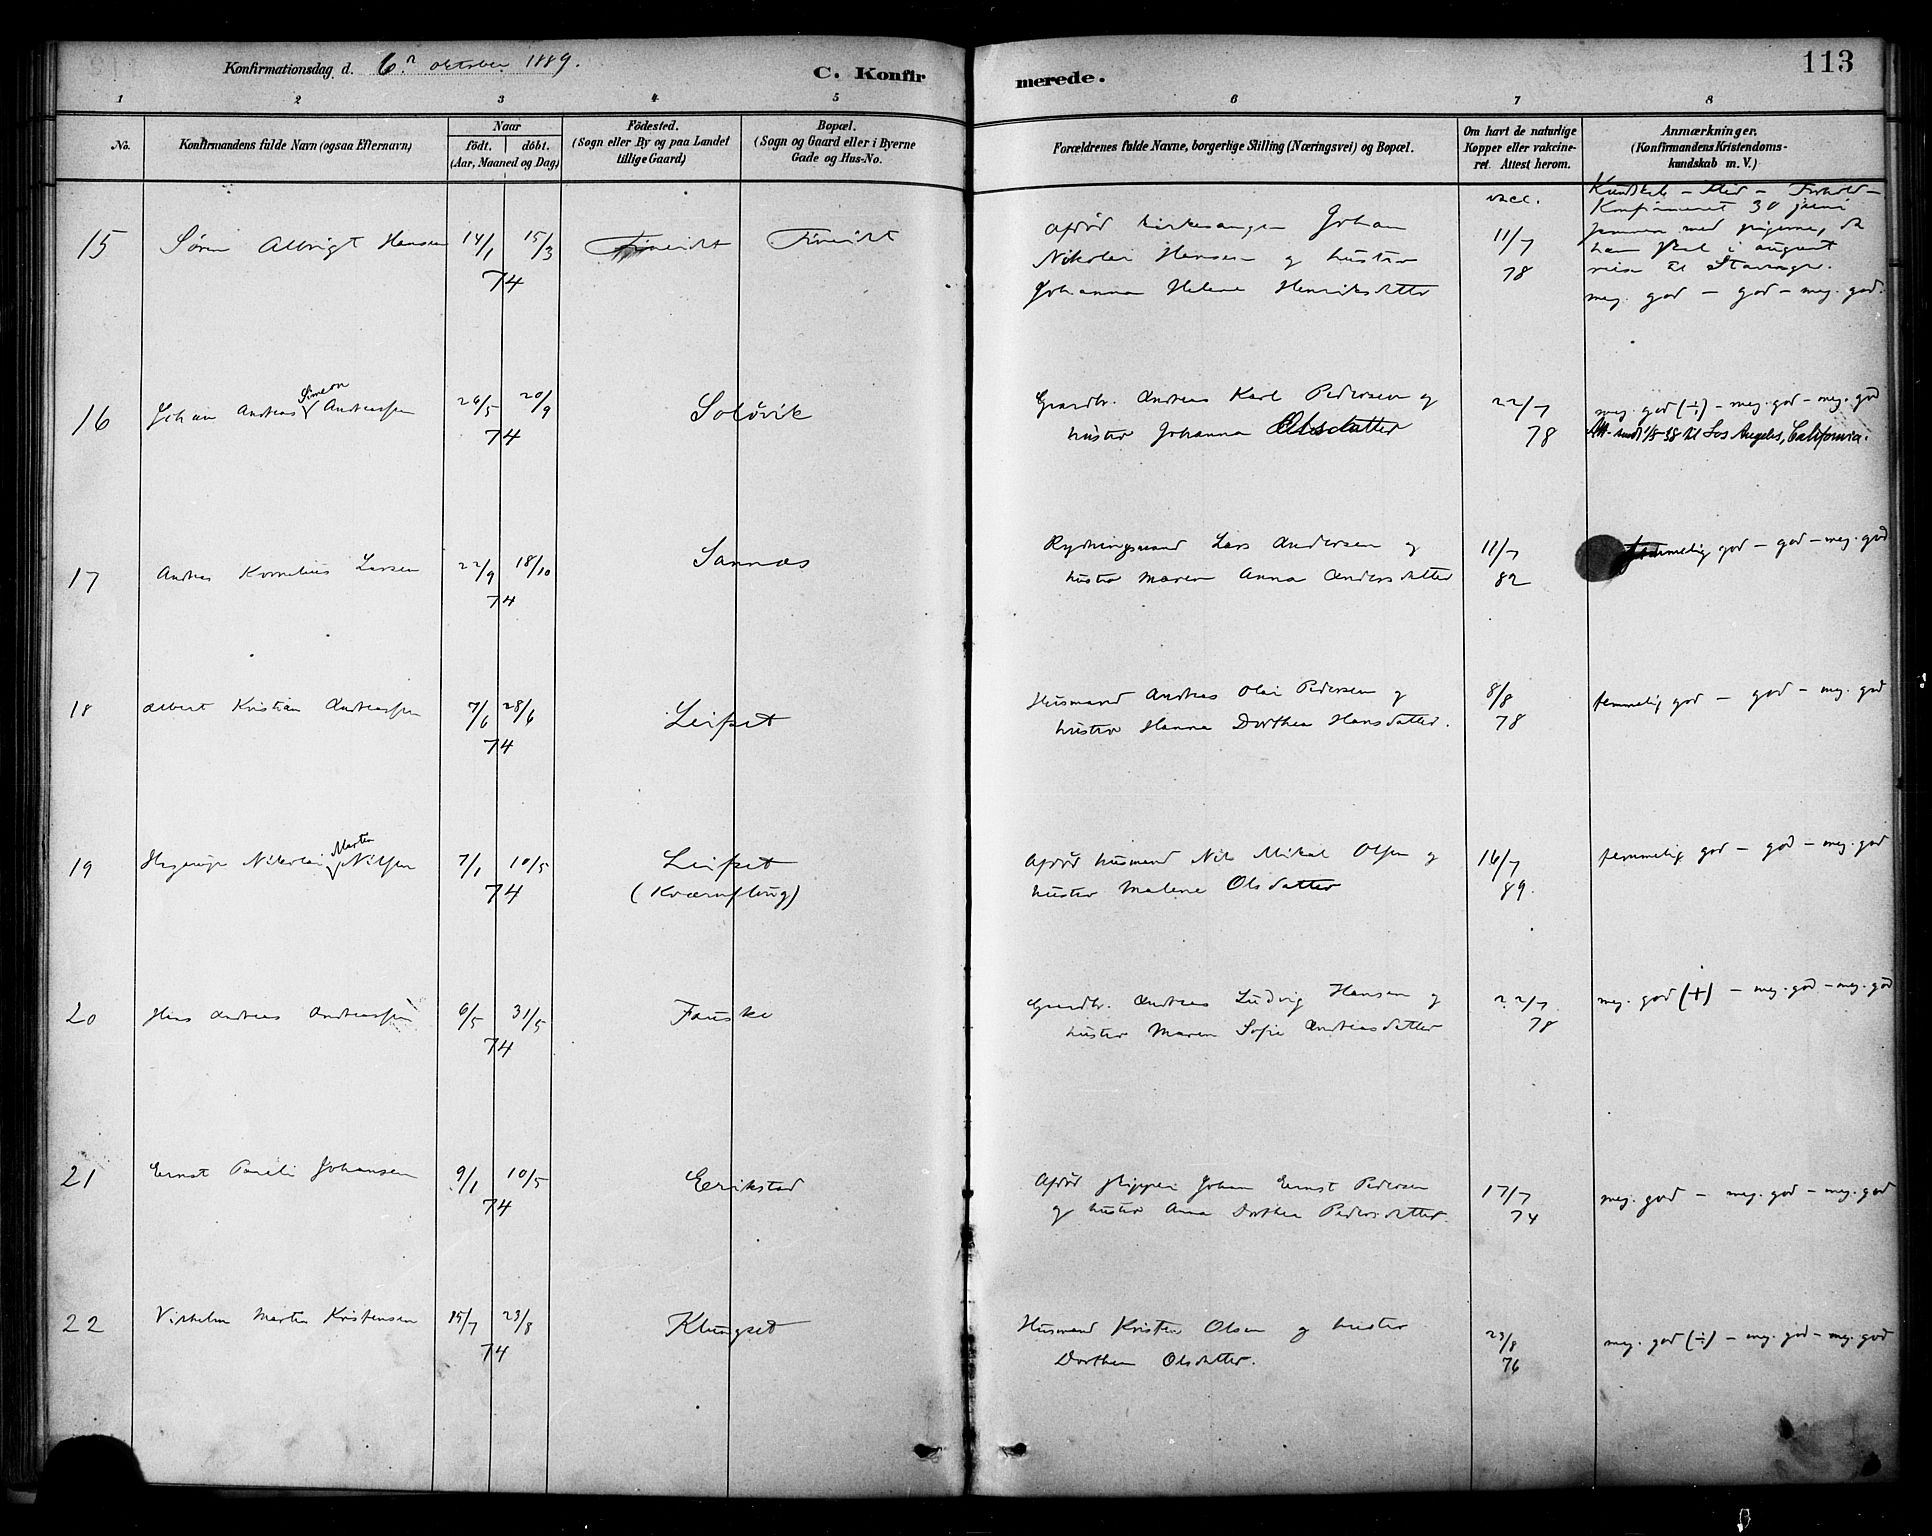 Konfirmationsdag d. 6. oktober 1889.
C. Konfirmerede.
113
1 2 3 4 5 6 7 8
No.
Konfirmandens fulde Navn (ogsaa Efternavn)
Naar
födt. döbt.
(Aar, Maaned og Dag)
Födested.
(Sogn eller By og paa Landet
tillige Gaard)
Bopæl.
(Sogn og Gaard eller i Byerne
Gade og Hus-No.
Forældrenes fulde Navne, borgerlige Stilling (Næringsvei) og Bopæl.
Om havt de naturlige
Kopper eller vakcine-
ret. Attest herom.
Anmærkninger.
(Konfirmandens Kristendoms-
kundskab m. V.)
15 Søren Albrigt Hansen 14/1 15/3 74
Afdød kirkesanger Johan
Nikolai Hansen og hustru
Johanna Helene Henriksdatter
vacc.
11/7
78
Kundskab – Flid – Forhold –
Konfirmeret 30 juni
sammen med pigerne, da
han skal i august
reise til Stavanger.
meg. god – god – meg. god.
16 Johan Andreas Simeon Andreassen 26/5 20/9 74
Soløvik
Gaardbr. Andreas Karl Pedersen og
hustru Johanna Olsdatter
22/7
78
meg. god (÷) – meg. god – meg. god
Att. sendt 1/5-38 til Los Angeles, California.
17 Andreas Kornelius Larsen 22/9 18/10 74
Sannæs
Rydningsmand Lars Andersen og
hustru Maren Anna Andersdatter
11/7
82
temmelig god – god – meg. god
18 Albert Kristian Andreassen 7/6 28/6 74
Leifset
Husmand Andreas Olai Pedersen og
hustru Hanna Dorthea Hansdatter.
8/8
78
temmelig god – god – meg. god
19 Nikolai Martin Nilssen 7/1 10/5 74
Leifset
(Kværnflaug)
Afdød husmand Nils Mikal Olsen og
hustru Malene Olsdatter
16/7
89.
temmelig god – god – meg. god
20 Hans Andreas Andreassen 6/5 31/5 74
Fauske
Gaardbr. Andreas Ludvig Hansen og
hustru Maren Sofie Andreasdatter
22/7
78
meg. god (+) – meg. god – meg. god
21 Ernst Pareli Johansen 9/1 10/5 74
Erikstad
Afdød skipper Johan Ernst Pedersen
og hustru Anna Dorthea Pedersdatter.
17/7
74
meg. god – meg. god – meg. god
22 Vilhelm Martin Kristensen 15/7 23/8 74
Klungset
Husmand Kristen Olsen og hustru
Dorthea Olsdatter.
23/8
76
meg. god (÷) – meg. god – meg. god